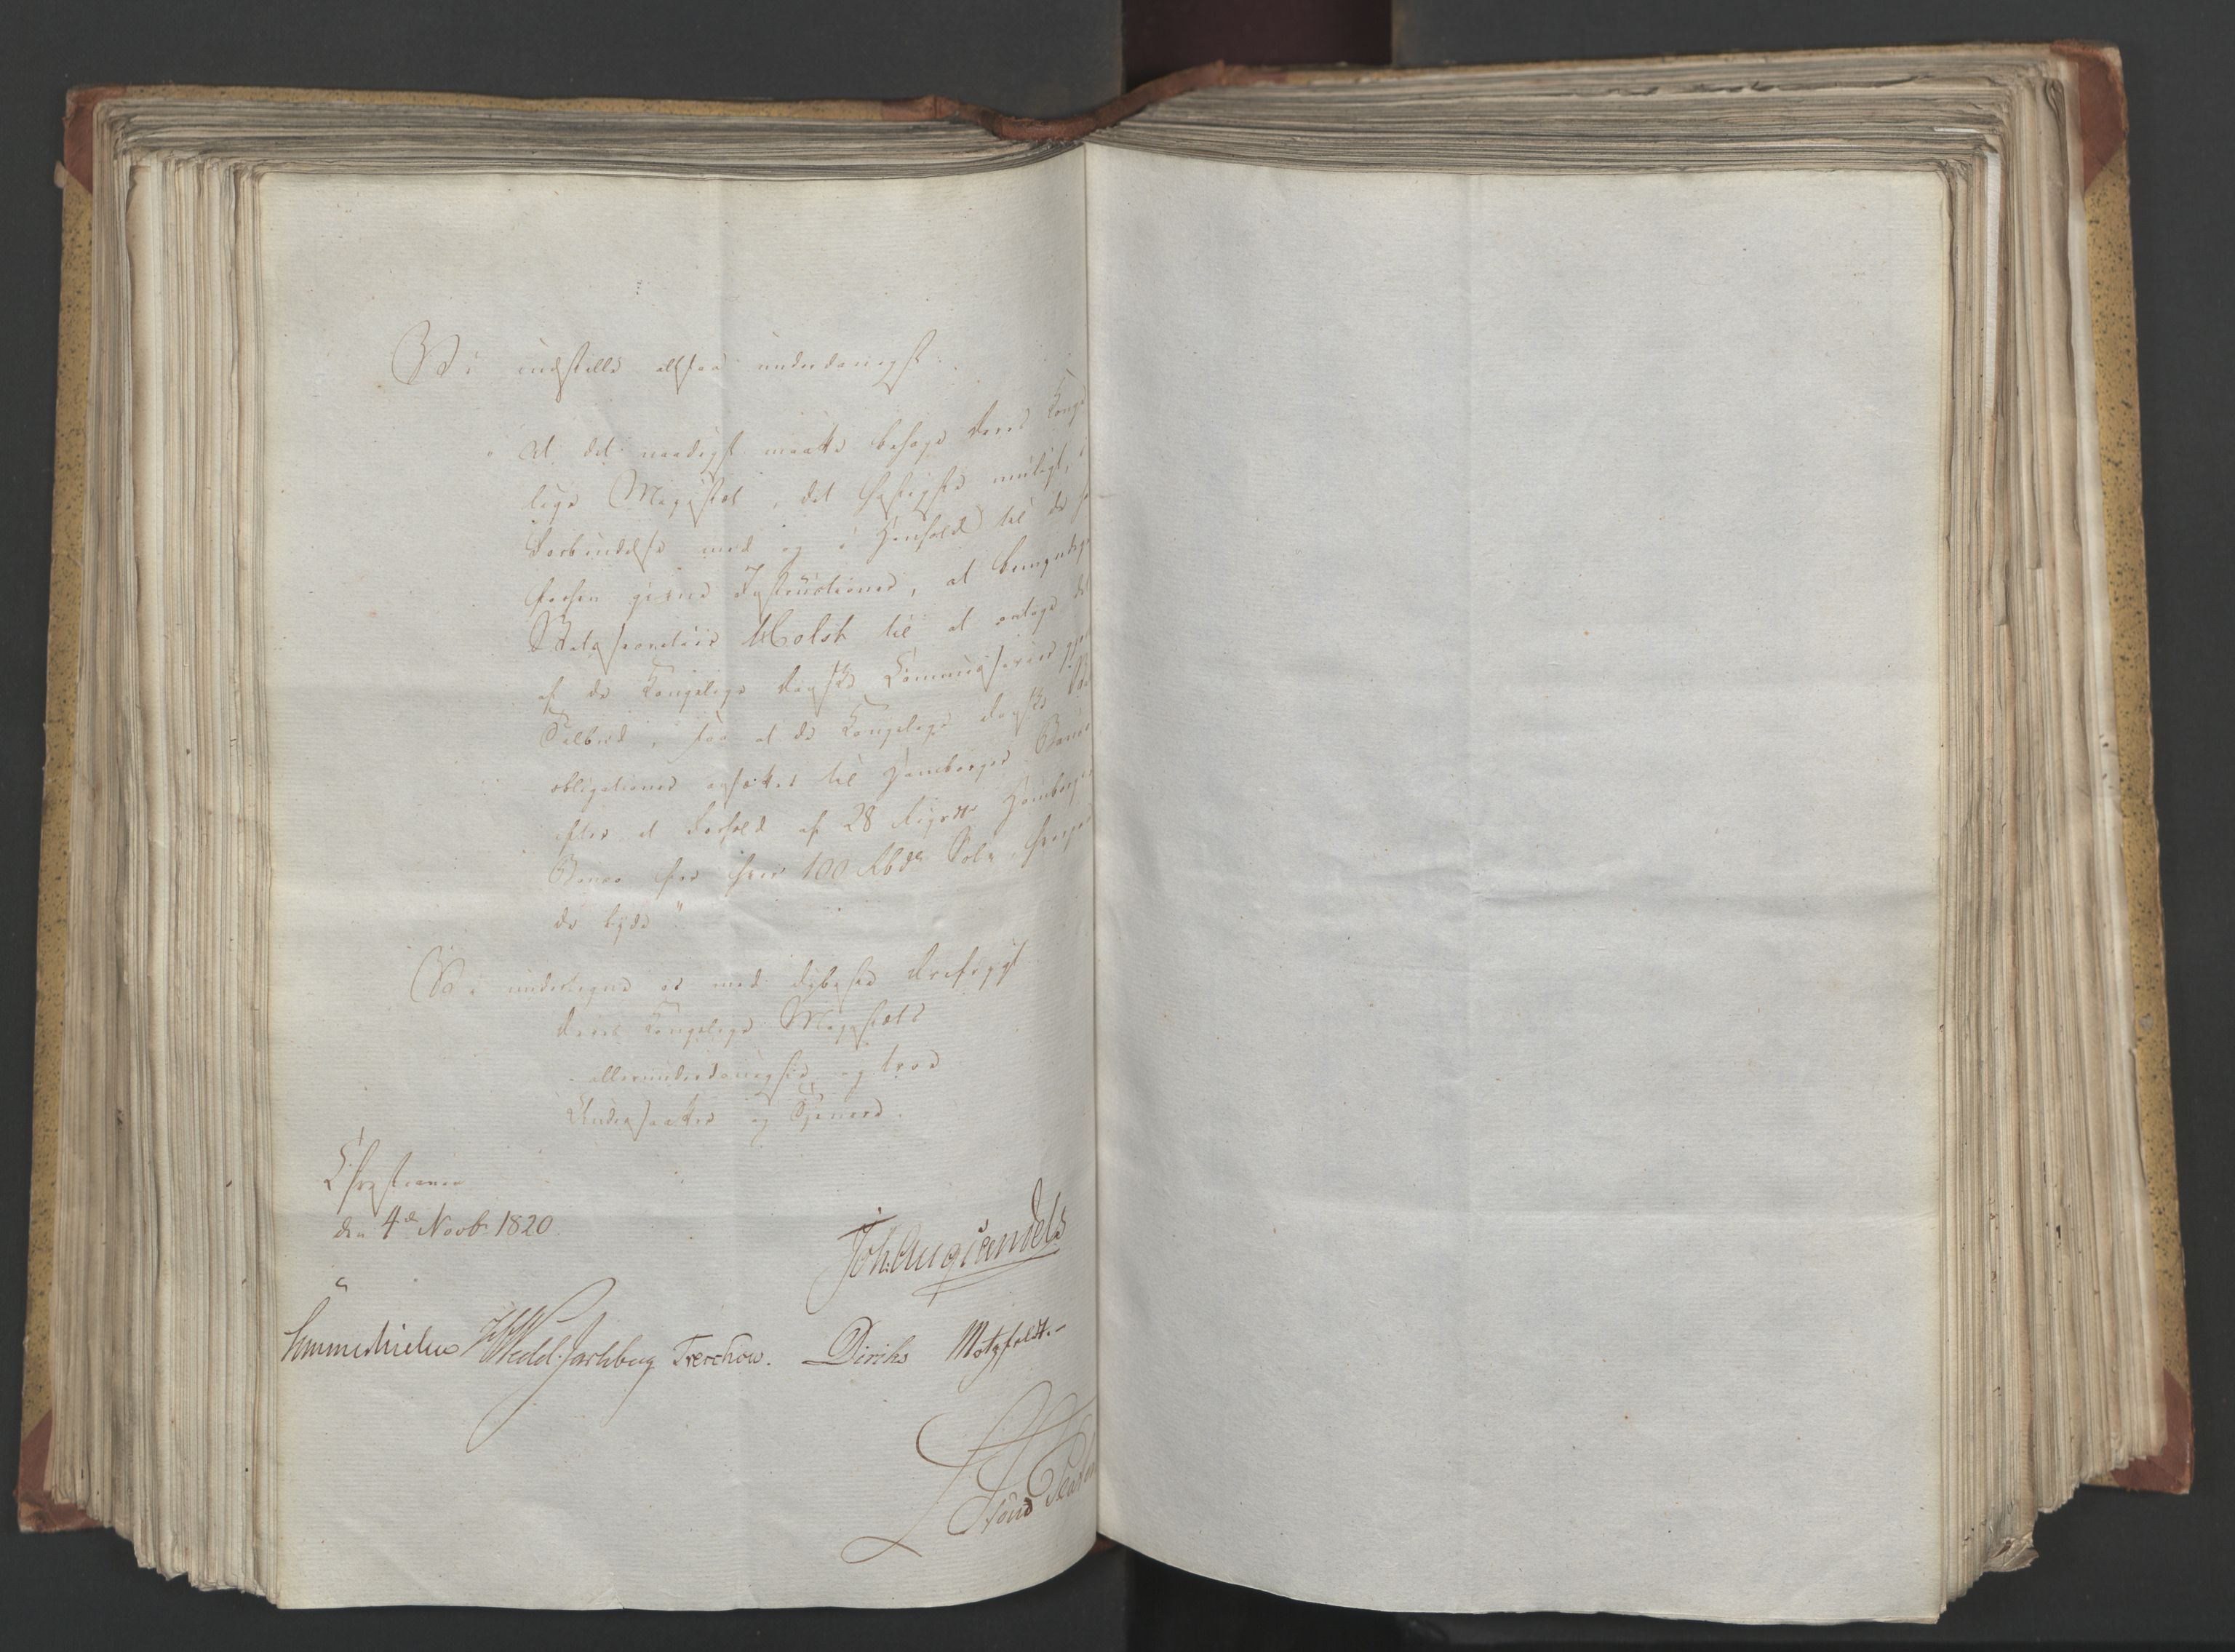 Vi indstille altsaa underdanigst:
"At det naadigst maatte behage Deres Konge
lige Majestæt, det hastigste muligt, i
Forbindelse med og i Henhold til de
forhen givne Instructioner, at bemyndige
Statssecretair Holst til at antage det
af de Kongelige danske Commissairer
Tilbud, saa at de Kongelige danske
obligationer ansættes til Hamborger Banco
efter et Forhold af 28 Rigsdlr Hamborger
Banco for hver 100 Rbdlr Sølv,
de lyde"
Vi undertegne os med dybeste Ærefrygt
Deres Kongelige Majestæts
allerunderdanigste og troe
Undersaatter og Tjenere.
Christiania
den 4de Novbr 1820
Joh. Aug. Sandels
Sommerhielm Wedel-Jarlsberg Treschow. Diriks Motzfeldt.